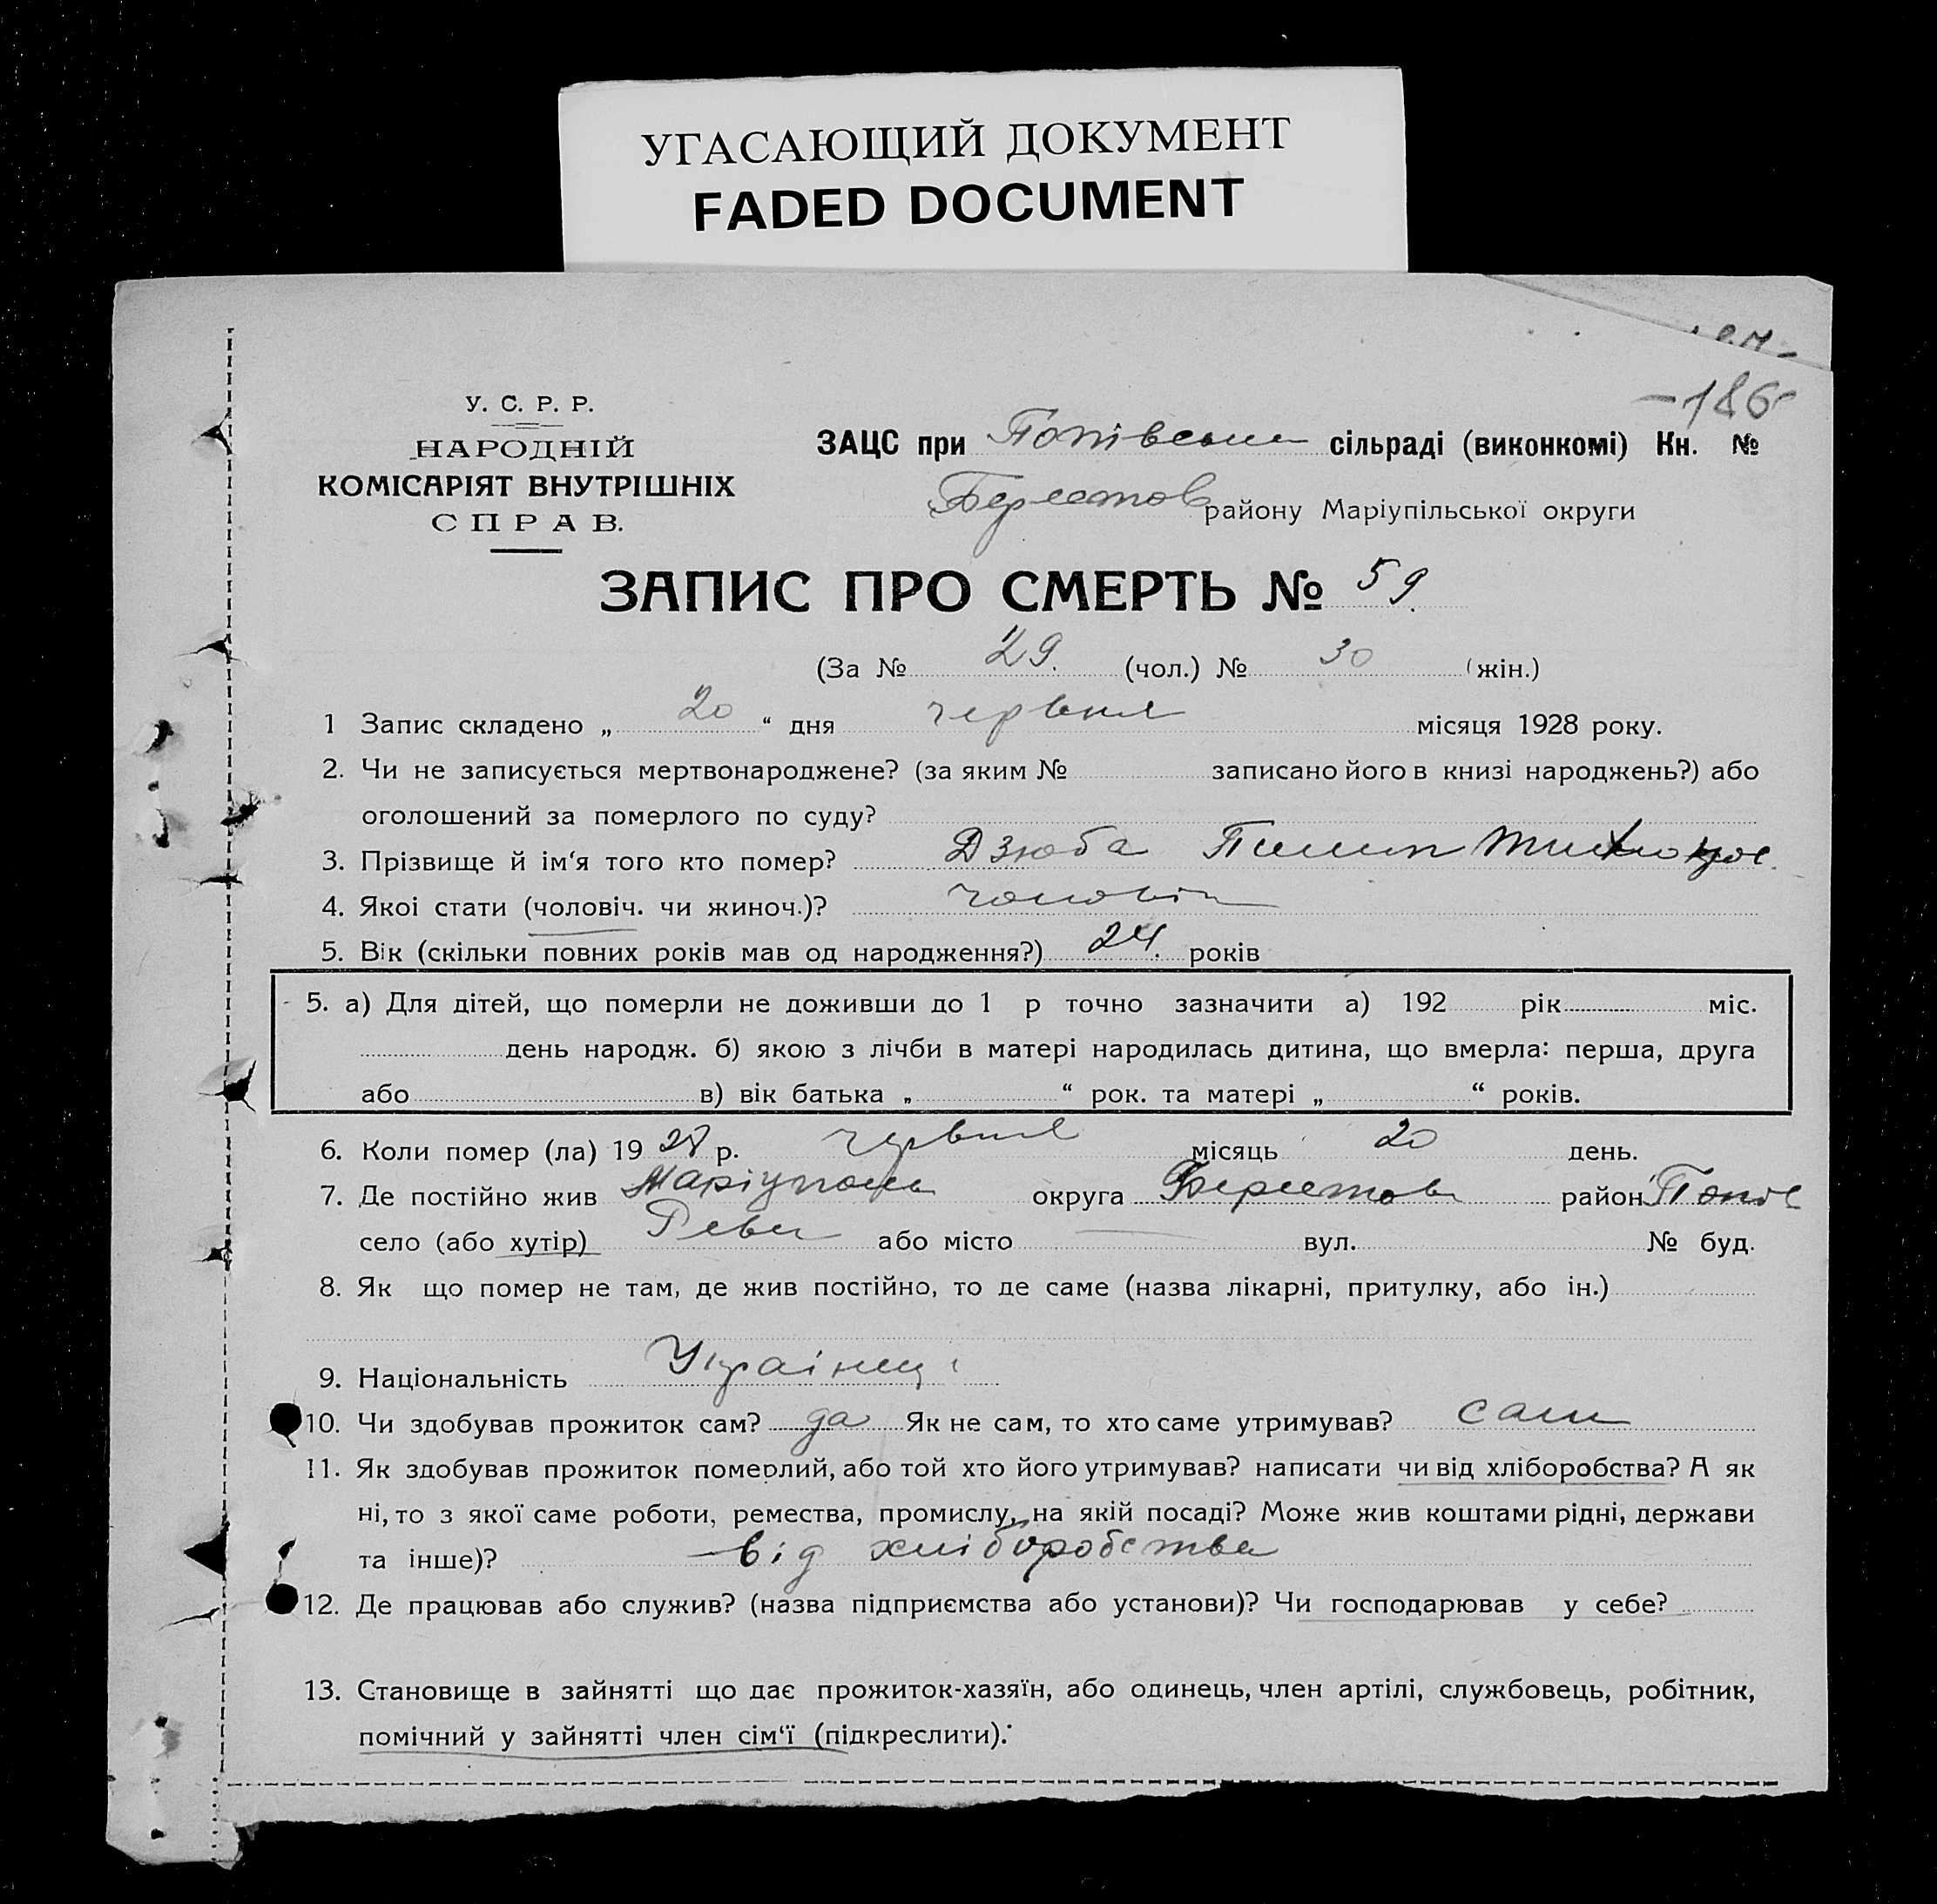 УГАСАЮЩИЙ ДОКУМЕНТ
FADED DOCUMENT
-186
У. С. Р. Р.
НАРОДНІЙ
КОМІСАРІЯТ ВНУТРІШНІХ
СПРАВ.
ЗАЦС при Попівськи сільраді (виконкомі) Кн. №
Берестов району Маріупільської округи
ЗАПИС ПРО СМЕРТЬ № 59.
(За № 29. (чол.) № 30 (жін.)
1 Запис складено „ 20 “ дня червня місяця 1928 року.
2. Чи не записується мертвонароджене? (за яким № записано його в книзі народжень?) або
оголошений за померлого по суду?
3. Прізвище й ім‘я того кто помер? Дзюба Пилип
4. Якої стати (чоловіч. чи жиноч.)? чоловік
5. Вік (скільки повних років мав од народження?) 24. років
5. а) Для дітей, що померли не доживши до 1 р точно зазначити а) 192 рік міс.
день народж. б) якою з лічби в матері народилась дитина, що вмерла: перша, друга
або в) вік батька „ “ рок. та матері „ “ років.
6. Коли помер (ла) 19 28 р. червня місяць 20 день.
7. Де постійно жив Маріуполь округа Берестов район Попів
село (або хутір) Рева або місто вул. № буд.
8. Як що помер не там, де жив постійно, то де саме (назва лікарні, притулку, або ін.)
9. Національність Українець
10. Чи здобував прожиток сам? да Як не сам, то хто саме утримував? сам
11. Як здобував прожиток померлий, або той хто його утримував? написати чи від хліборобства? А як
ні, то з якої саме роботи, ремества, промислу, на якій посаді? Може жив коштами рідні, держави
та інше)? від хліборобства
12. Де працював або служив? (назва підприємства або установи)? Чи господарював у себе?
13. Становище в зайнятті що дає прожиток-хазяїн, або одинець, член артілі, службовець, робітник,
помічний у зайнятті член сім‘ї (підкреслити).